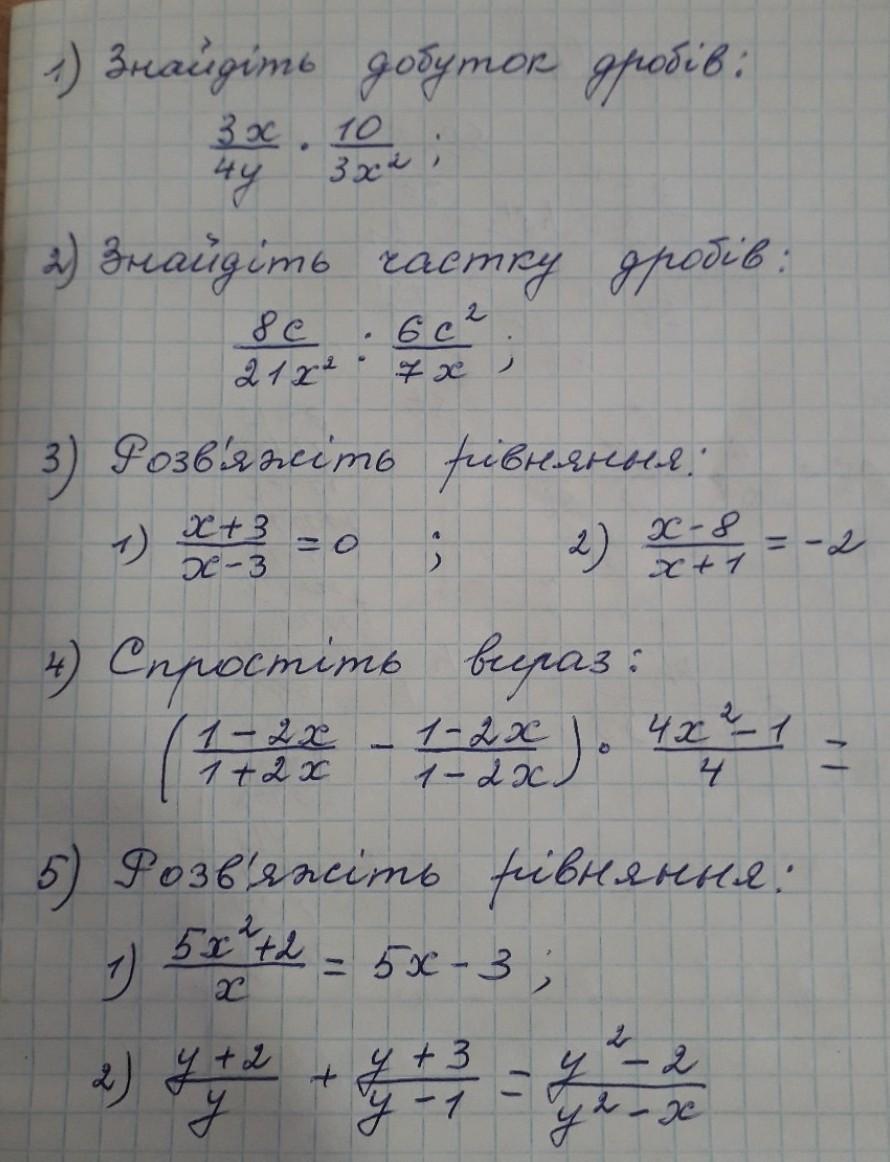 1) Знайдіть добуток дробів:
3x/4y · 10/3x² ;
2) Знайдіть частку дробів:
8c/21x² : 6c²/7x ;
3) Розв'яжіть рівняння:
1) (x+3)/(x-3) = 0 ; 2) (x-8)/(x+1) = -2
4) Спростіть вираз:
((1-2x)/(1+2x) - (1-2x)/(1-2x)) · (4x²-1)/4 =
5) Розв'яжіть рівняння:
1) (5x²+2)/x = 5x-3 ;
2) (y+2)/y + (y+3)/(y-1) = (y²-2)/(y²-x)